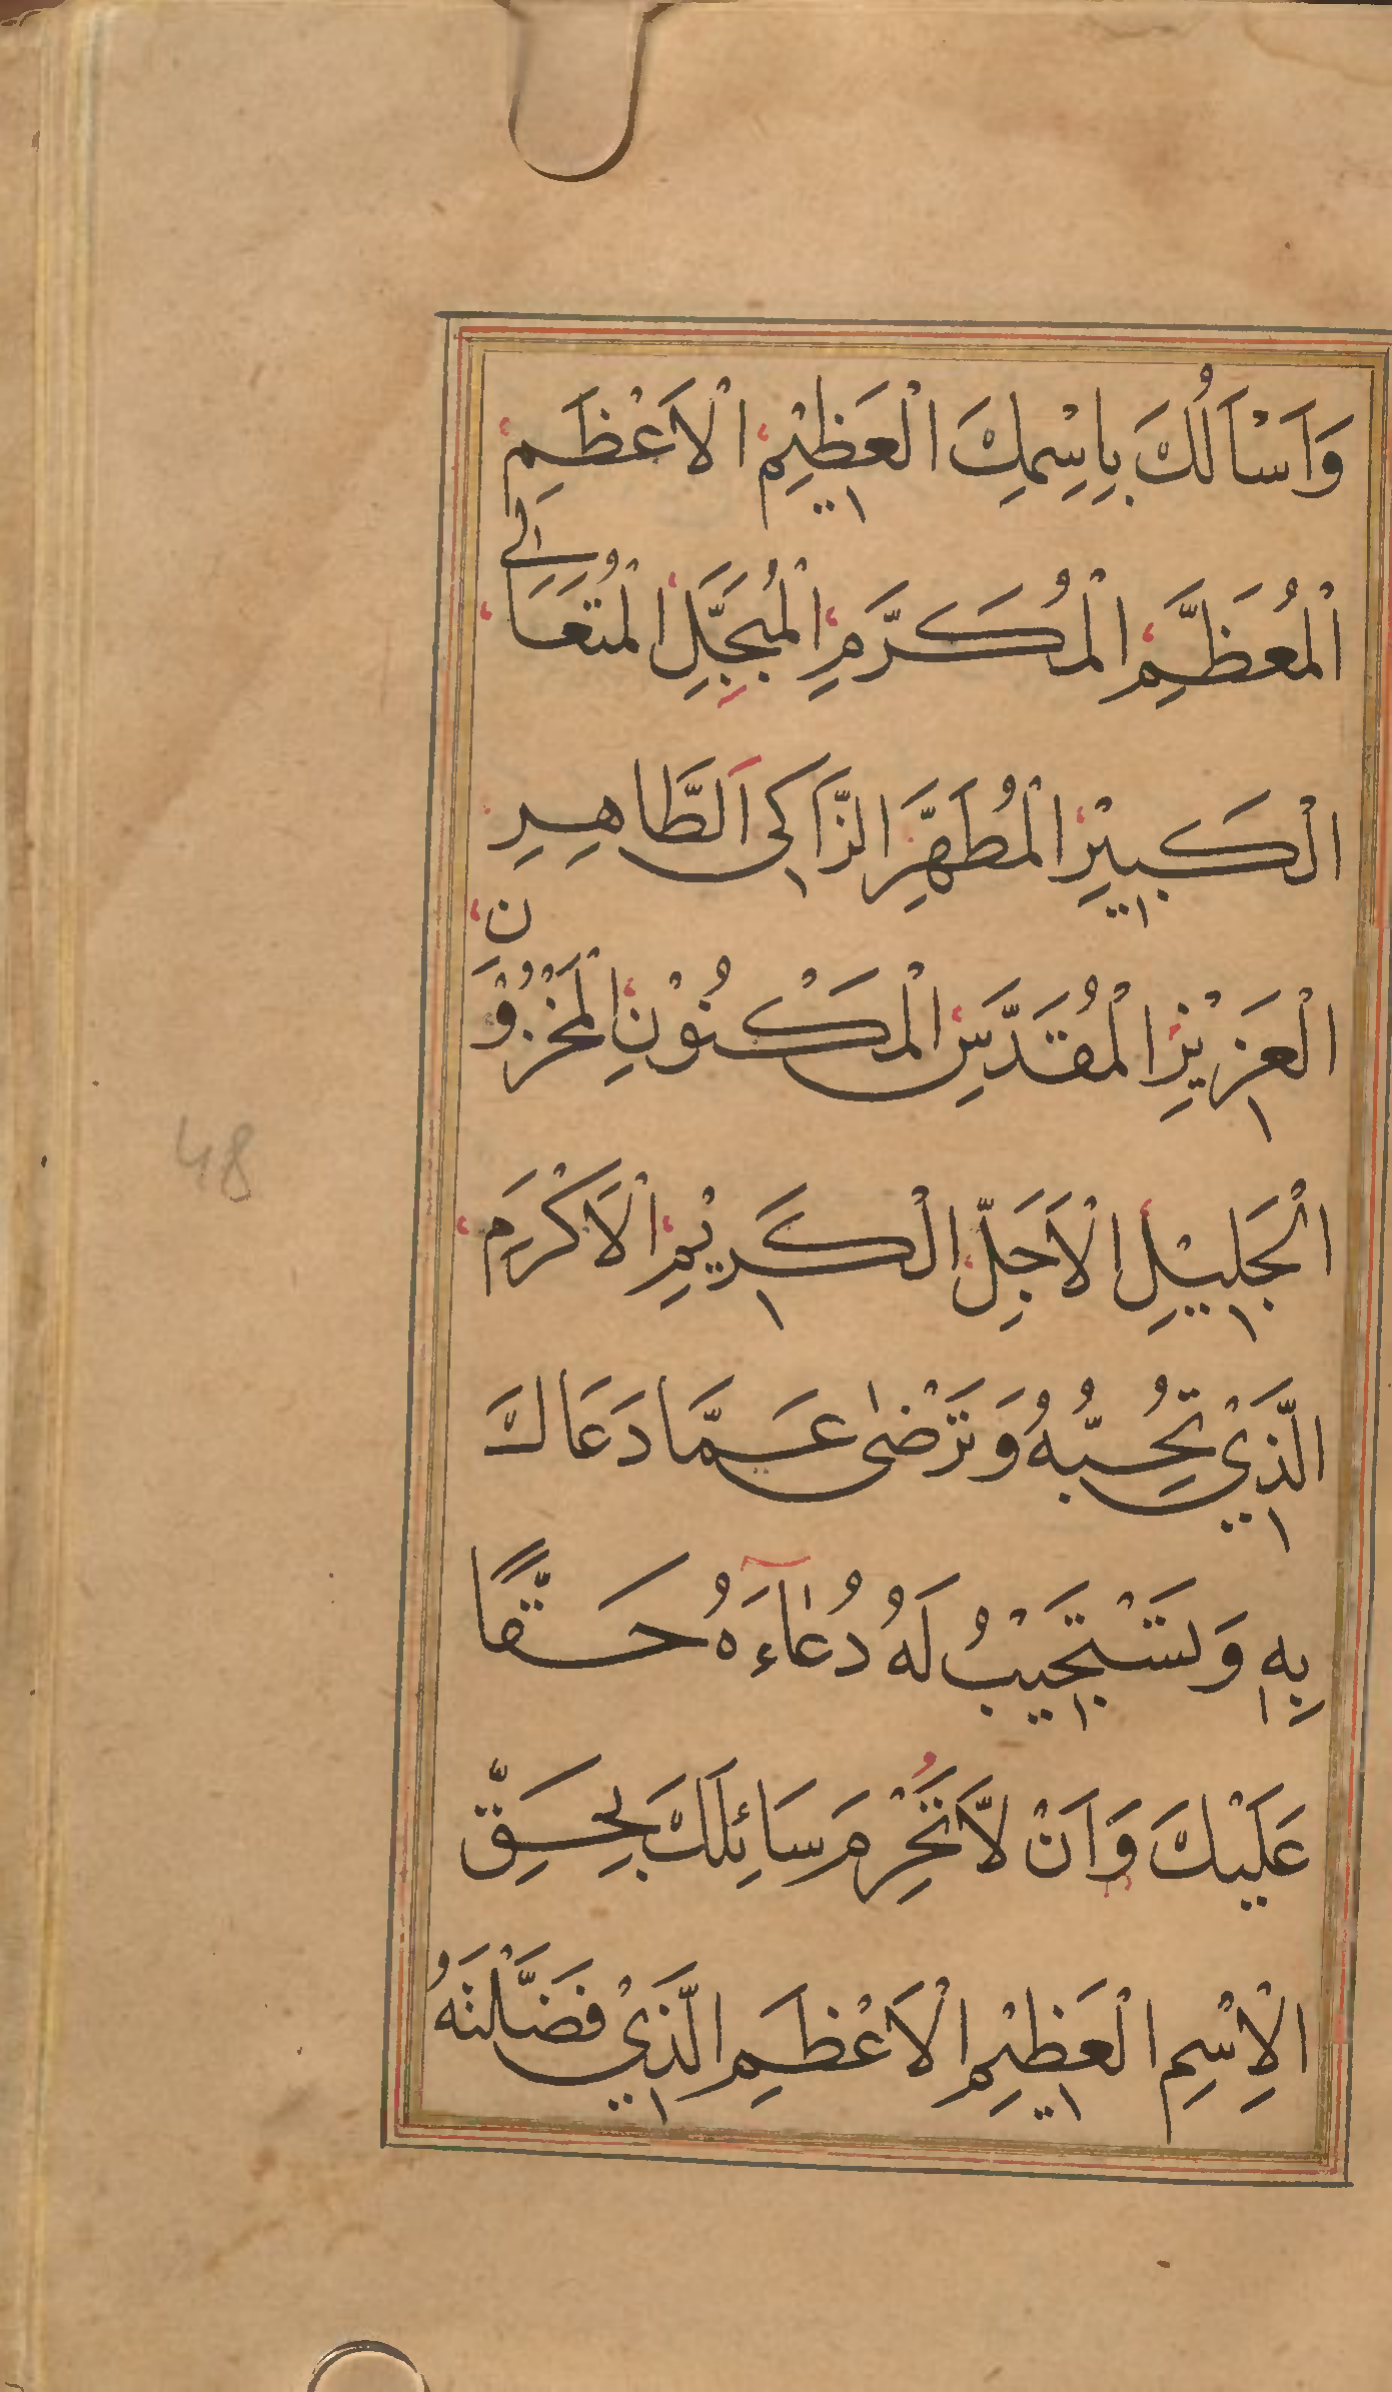 وَاَسْاَلُكَ بِاِسْمِكَ الْعَظِيْمِ الْاَعْظَمِ
الْمُعَظَّمِ الْمُكَرَّمِ الْمُبَجَّلِ الْمُتَعَالِي
الْكَبِيْرِ الْمُطَهَّرِ الزَّاكِى اَلطَّاهِرِ
الْعَزِيْزِ الْمُقَدَّسِ الْمَكْنُوْنِ الْمَخْزُوْنِ
الْجَلِيْلِ الْاَجَلِّ الْكَرِيْمِ الْاَكْرَمِ
الَّذِيْ تُحِبُّهُ وَتَرْضٰى عَمَّا دَعَاكَ
بِهٖ وَتَسْتَجِيْبُ لَهُ دُعَاءَهُ حَقًّا
عَلَيْكَ وَاَنْ لَّا تَحْرِمَ سَائِلَكَ بِحَقِّ
الْاِسْمِ الْعَظِيْمِ الْاَعْظَمِ الَّذِيْ فَضَّلْتَهُ
48